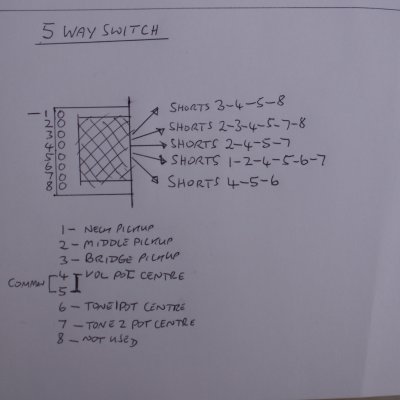 5 WAY SWITCH
1
2
3
4
5
6
7
8
SHORTS 3-4-5-8
SHORTS 2-3-4-5-7-8
SHORTS 2-4-5-7
SHORTS 1-2-4-5-6-7
SHORTS 4-5-6
1 - NECK PICKUP
2 - MIDDLE PICKUP
3 - BRIDGE PICKUP
4 - VOL POT CENTRE
COMMON
5
6 - TONE 1 POT CENTRE
7 - TONE 2 POT CENTRE
8 - NOT USED